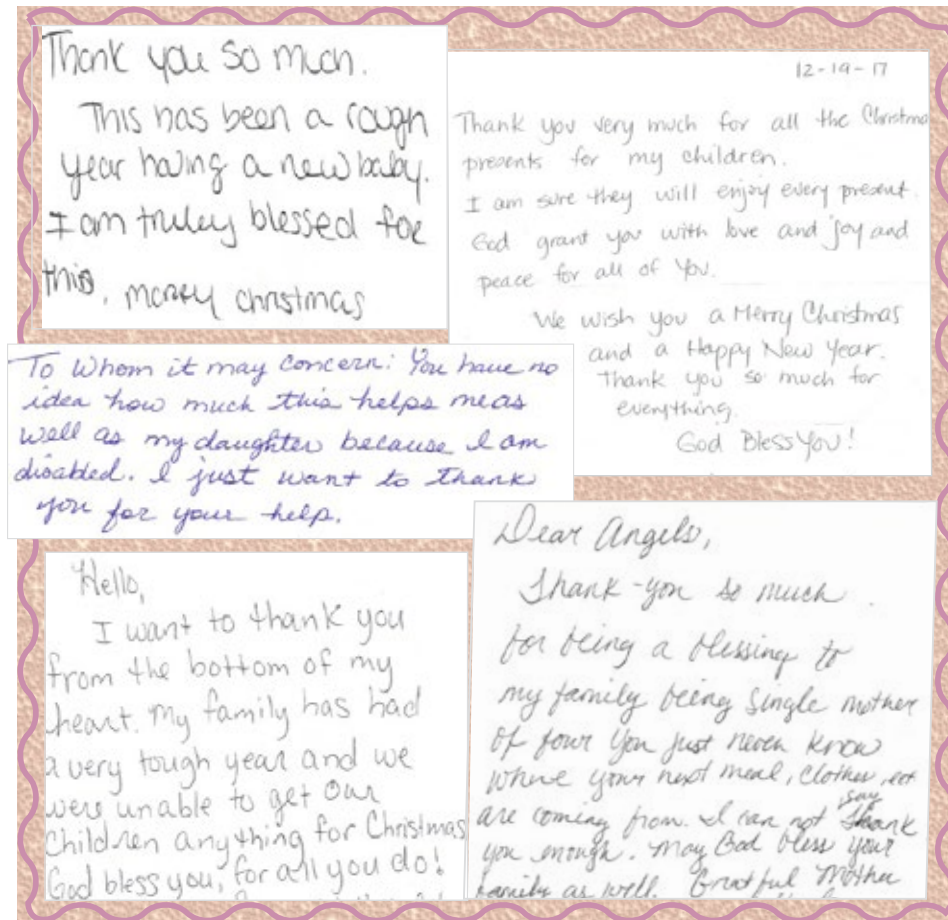 Thank you so much.
This has been a rough
year having a new baby.
I am truley blessed for
this. merry christmas
12-19-17
Thank you very much for all the Christma
presents for my children.
I am sure they will enjoy every present.
God grant you with love and joy and
peace for all of you.
We wish you a Merry Christmas
and a Happy New Year.
Thank you so much for
everything.
God Bless You!
To Whom it may concern: You have no
idea how much this helps me as
well as my daughter because I am
disabled. I just want to thank
you for your help.
Hello,
I want to thank you
from the bottom of my
heart. My family has had
a very tough year and we
were unable to get our
Children anything for Christmas
God bless you, for all you do!
Dear Angels,
Thank-you so much
for being a blessing to
my family being single mother
of four You just never know
where your next meal, clothes, ect
are coming from. I can not say
you enough. May God bless your
family as well. Grateful Mother